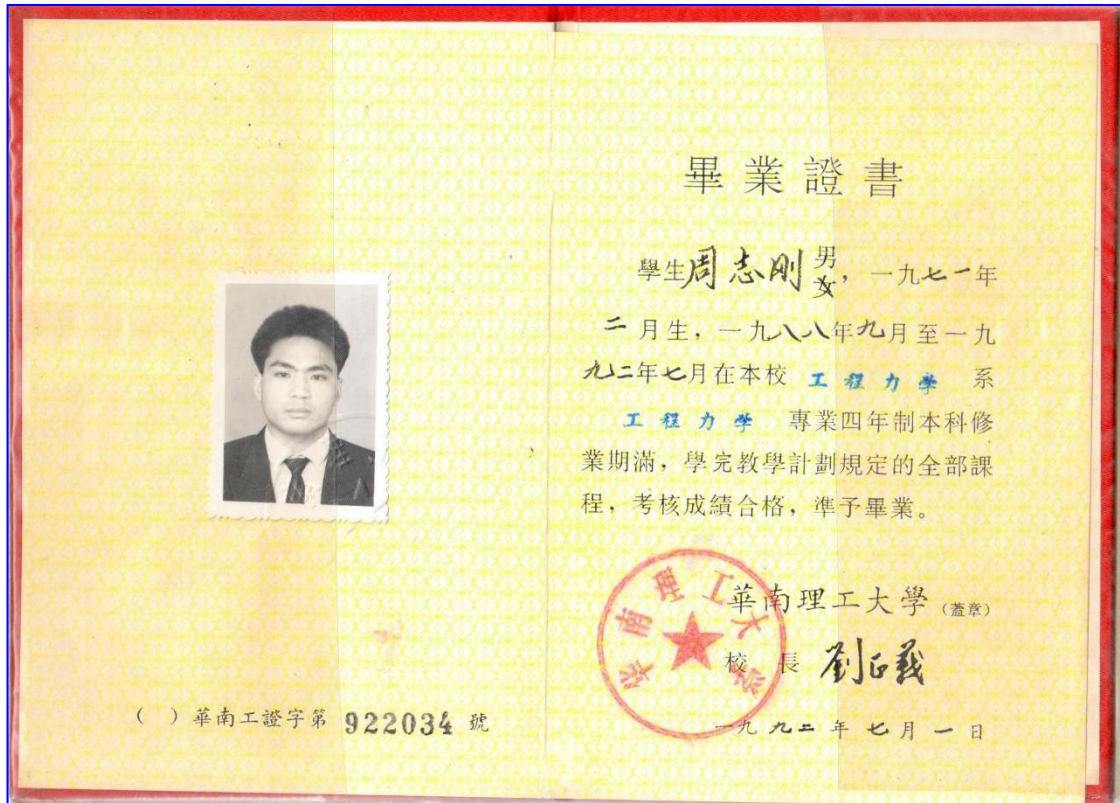 畢業證書
學生周志刚 男
女, 一九七一年
二月生, 一九八八年九月至一九
九二年七月在本校 工程力学 系
工程力学 專業四年制本科修
業期滿, 學完教學計劃規定的全部課
程, 考核成績合格, 準予畢業。
華南理工大學 (蓋章)
校長 劉正義
一九九二年七月一日
华南理工大学
( ) 華南工證字第 922034 號